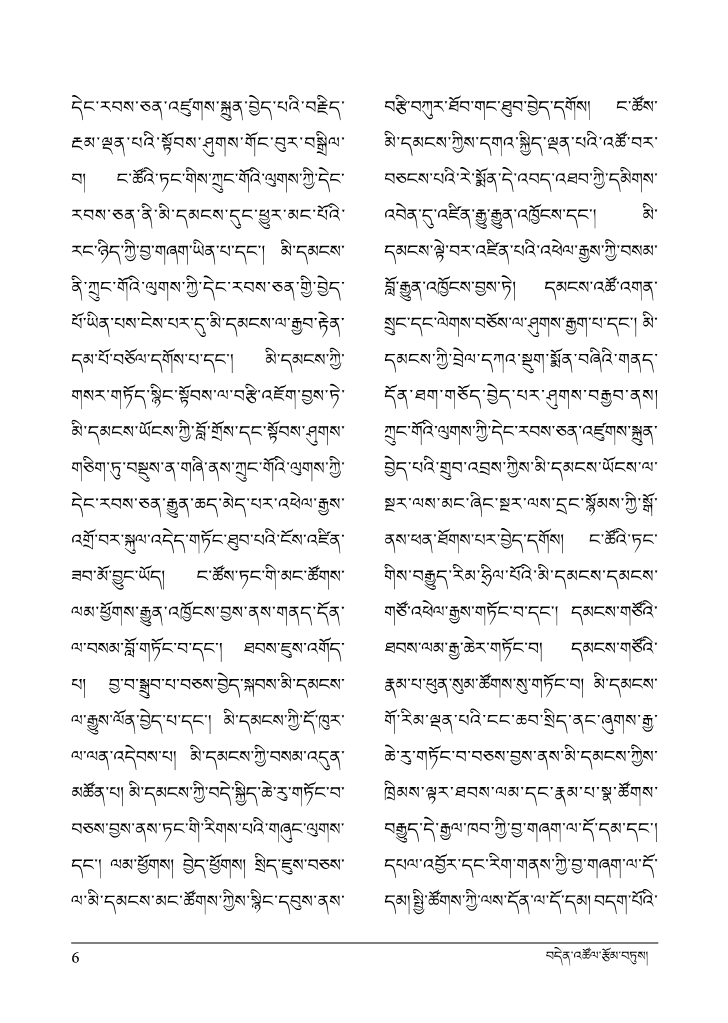 དེང་རབས་ཅན་འཛུགས་སྐྲུན་བྱེད་པའི་བརྗིད་
ཉམས་ལྡན་པའི་སྟོབས་ཤུགས་གོང་བུར་བསྒྲིལ་
བ། ང་ཚོའི་ཏང་གིས་ཀྲུང་གོའི་ལུགས་ཀྱི་དེང་
རབས་ཅན་ནི་མི་དམངས་དུང་ཕྱུར་མང་པོའི་
རང་ཉིད་ཀྱི་བྱ་གཞག་ཡིན་པ་དང་། མི་དམངས་
ནི་ཀྲུང་གོའི་ལུགས་ཀྱི་དེང་རབས་ཅན་གྱི་བྱེད་
པོ་ཡིན་པས་ངེས་པར་དུ་མི་དམངས་ལ་རྒྱབ་རྟེན་
དམ་པོ་བཅོལ་དགོས་པ་དང་། མི་དམངས་ཀྱི་
གསར་གཏོད་སྙིང་སྟོབས་ལ་བརྩི་འཇོག་བྱས་ཏེ་
མི་དམངས་ཡོངས་ཀྱི་བློ་གྲོས་དང་སྟོབས་ཤུགས་
གཅིག་ཏུ་བསྡུས་ན་གཞི་ནས་ཀྲུང་གོའི་ལུགས་ཀྱི་
དེང་རབས་ཅན་རྒྱུན་ཆད་མེད་པར་འཕེལ་རྒྱས་
འགྲོ་བར་སྐུལ་འདེད་གཏོང་ཐུབ་པའི་ངོས་འཛིན་
ཟབ་མོ་བྱུང་ཡོད། ང་ཚོས་ཏང་གི་མང་ཚོགས་
ལམ་ཕྱོགས་རྒྱུན་འཁྱོངས་བྱས་ནས་གནད་དོན་
ལ་བསམ་བློ་གཏོང་བ་དང་། ཐབས་ཇུས་འགོད་
པ། བྱ་བ་སྒྲུབ་པ་བཅས་བྱེད་སྐབས་མི་དམངས་
ལ་རྒྱུས་ལོན་བྱེད་པ་དང་། མི་དམངས་ཀྱི་དོ་ཁུར་
ལ་ལན་འདེབས་པ། མི་དམངས་ཀྱི་བསམ་འདུན་
མཚོན་པ། མི་དམངས་ཀྱི་བདེ་སྐྱིད་ཆེ་རུ་གཏོང་བ་
བཅས་བྱས་ནས་ཏང་གི་རིགས་པའི་གཞུང་ལུགས་
དང་། ལམ་ཕྱོགས། བྱེད་ཕྱོགས། སྲིད་ཇུས་བཅས་
ལ་མི་དམངས་མང་ཚོགས་ཀྱིས་སྙིང་དབུས་ནས་
བརྩི་བཀུར་ཐོབ་གང་ཐུབ་བྱེད་དགོས། ང་ཚོས་
མི་དམངས་ཀྱིས་དགའ་སྐྱིད་ལྡན་པའི་འཚོ་བར་
བཅངས་པའི་རེ་སྨོན་དེ་འབད་འཐབ་ཀྱི་དམིགས་
འབེན་དུ་འཛིན་རྒྱུ་རྒྱུན་འཁྱོངས་དང་། མི་
དམངས་ལྟེ་བར་འཛིན་པའི་འཕེལ་རྒྱས་ཀྱི་བསམ་
བློ་རྒྱུན་འཁྱོངས་བྱས་ཏེ། དམངས་འཚོ་འགན་
སྲུང་དང་ལེགས་བཅོས་ལ་ཤུགས་རྒྱག་པ་དང་། མི་
དམངས་ཀྱི་བྲེལ་དཀའ་སྡུག་སྨོན་བཞིའི་གནད་
དོན་ཐག་གཅོད་བྱེད་པར་ཤུགས་བརྒྱབ་ནས།
ཀྲུང་གོའི་ལུགས་ཀྱི་དེང་རབས་ཅན་འཛུགས་སྐྲུན་
བྱེད་པའི་གྲུབ་འབྲས་ཀྱིས་མི་དམངས་ཡོངས་ལ་
སྔར་ལས་མང་ཞིང་སྔར་ལས་དྲང་སྙོམས་ཀྱི་སྒོ་
ནས་ཕན་ཐོགས་པར་བྱེད་དགོས། ང་ཚོའི་ཏང་
གིས་བརྒྱུད་རིམ་ཧྲིལ་པོའི་མི་དམངས་དམངས་
གཙོ་འཕེལ་རྒྱས་གཏོང་བ་དང་། དམངས་གཙོའི་
ཐབས་ལམ་རྒྱ་ཆེར་གཏོང་བ། དམངས་གཙོའི་
རྣམ་པ་ཕུན་སུམ་ཚོགས་སུ་གཏོང་བ། མི་དམངས་
གོ་རིམ་ལྡན་པའི་ངང་ཆབ་སྲིད་ནང་ཞུགས་རྒྱ་
ཆེ་རུ་གཏོང་བ་བཅས་བྱས་ནས་མི་དམངས་ཀྱིས་
ཁྲིམས་ལྟར་ཐབས་ལམ་དང་རྣམ་པ་སྣ་ཚོགས་
བརྒྱུད་དེ་རྒྱལ་ཁབ་ཀྱི་བྱ་གཞག་ལ་དོ་དམ་དང་།
དཔལ་འབྱོར་དང་རིག་གནས་ཀྱི་བྱ་གཞག་ལ་དོ་
དམ། སྤྱི་ཚོགས་ཀྱི་ལས་དོན་ལ་དོ་དམ། བདག་པོའི་
6 བདེན་འཚོལ་རྩོམ་བཏུས།